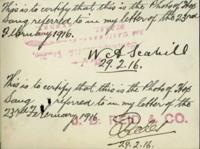 This is to certify that this is the Photo of Hop
Sang referred to in my letter of the 23rd
February 1916.
W. A. Seahill
29.2.16.
This is to certify that this is the Photo of Hop
Sang referred to in my letter of the
23rd February 1916.
REID & CO.
29.2.16.